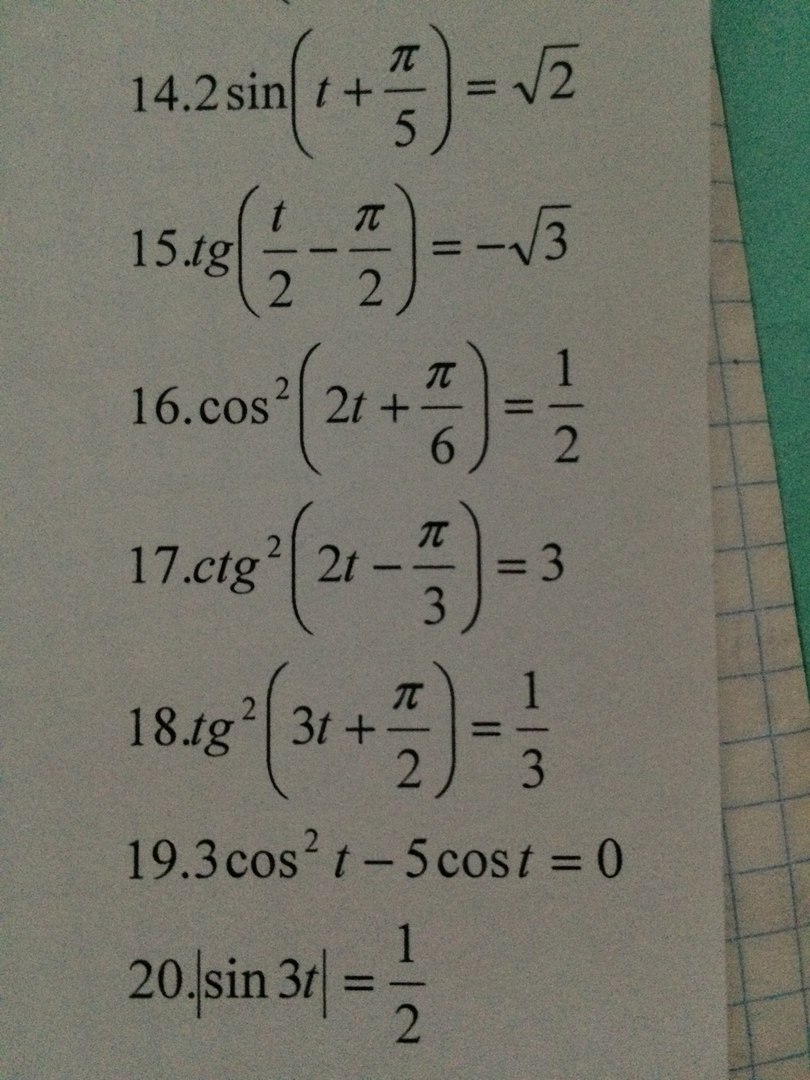 14. 2 sin(t + π/5) = √2
15. tg(t/2 − π/2) = −√3
16. cos²(2t + π/6) = 1/2
17. ctg²(2t − π/3) = 3
18. tg²(3t + π/2) = 1/3
19. 3 cos² t − 5 cos t = 0
20. |sin 3t| = 1/2